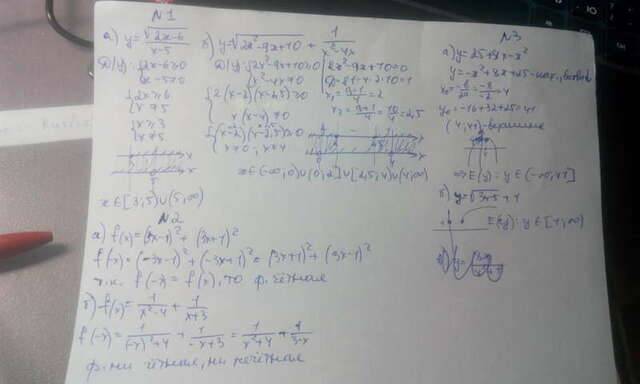 N1
а) y = √(2x-6) / (x-5)
Д(y): {2x-6≥0
x-5≠0
{2x≥6
x≠5
{x≥3
x≠5
x∈[3;5)∪(5;∞)
б) y = √(2x²-9x+10) + 1/(x²-4x)
Д(y): {2x²-9x+10≥0
x²-4x≠0
2x²-9x+10=0
D=81-4·2·10=1
x₁ = (9-1)/4 = 2
x₂ = (9+1)/4 = 10/4 = 2,5
{2(x-2)(x-2,5)≥0
x(x-4)≠0
{(x-2)(x-2,5)≥0
x≠0, x≠4
x∈(-∞;0)∪(0;2]∪[2,5;4)∪(4;∞)
N2
а) f(x) = (3x-1)² + (3x+1)²
f(-x) = (-3x-1)² + (-3x+1)² = (3x+1)² + (3x-1)²
т.к. f(-x) = f(x), то ф. чётная
б) f(x) = 1/(x²-4) + 1/(x+3)
f(-x) = 1/((-x)²+4) + 1/(-x+3) = 1/(x²+4) + 1/(3-x)
ф. ни чётная, ни нечётная
N3
а) y = 25+8x-x²
y = -x²+8x+25
y₀ = -16+32+25 = 41
(4;41) - вершина
⇒ E(y): y∈(-∞;41]
б) y = √(3x-5) + 1
E(y): y∈[1;∞)
в) y =